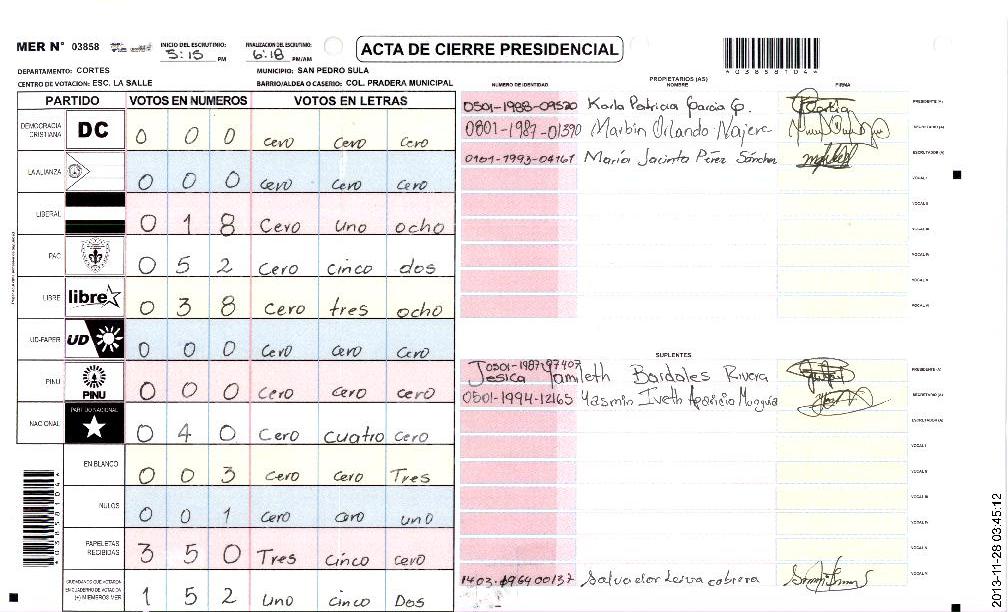 MER N° 03858
INICIO DEL ESCRUTINIO:
5:15 PM
FINALIZACION DEL ESCRUTINIO:
6:18 PM/AM
ACTA DE CIERRE PRESIDENCIAL
*03858104*
DEPARTAMENTO: CORTES
MUNICIPIO: SAN PEDRO SULA
CENTRO DE VOTACION: ESC. LA SALLE
BARRIO/ALDEA O CASERIO: COL. PRADERA MUNICIPAL
PARTIDO VOTOS EN NUMEROS VOTOS EN LETRAS
DEMOCRACIA CRISTIANA DC 0 0 0 cero cero cero
LA ALIANZA 0 0 0 cero cero cero
LIBERAL 0 1 8 Cero uno ocho
PAC 0 5 2 Cero cinco dos
LIBRE libre 0 3 8 Cero tres ocho
UD-FAPER UD 0 0 0 Cero Cero Cero
PINU PINU 0 0 0 Cero cero cero
NACIONAL PARTIDO NACIONAL 0 4 0 Cero cuatro cero
EN BLANCO 0 0 3 cero cero Tres
NULOS 0 0 1 cero cero uno
PAPELETAS RECIBIDAS 3 5 0 Tres cinco cero
CIUDADANOS QUE VOTARON EN CUADERNO DE VOTACION (+) MIEMBROS MER 1 5 2 uno cinco Dos
*03858104*
PROPIETARIOS (AS)
NUMERO DE IDENTIDAD NOMBRE FIRMA
0501-1988-09520 Karla Patricia Garcia G. PRESIDENTE (A)
0801-1987-01390 Marbin Orlando Najera SECRETARIO (A)
0101-1993-04161 María Jacinta Pérez Sánchez ESCRUTADOR (A)
VOCAL I
VOCAL II
VOCAL III
VOCAL IV
VOCAL V
VOCAL VI
SUPLENTES
0501-1987-07407
Jesica Yamileth Bardales Rivera PRESIDENTE (A)
0501-1994-12165 Yasmin Iveth Aparicio Munguia SECRETARIO (A)
ESCRUTADOR (A)
VOCAL I
VOCAL II
VOCAL III
VOCAL IV
VOCAL V
1403-1964 00137 Salvador Leiva cabrera VOCAL VI
2013-11-28 03:45:12